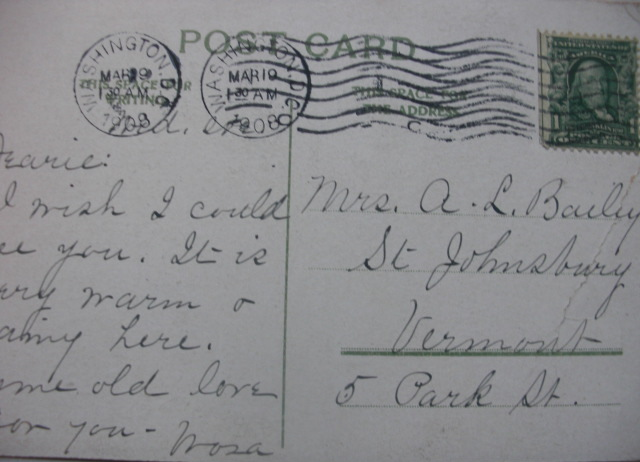 POST CARD
WASHINGTON, D.C.
MAR 19
1 30 AM
1908
WASHINGTON, D.C.
MAR 19
1 30 AM
1908
THIS SPACE FOR
WRITING
THIS SPACE FOR
THE ADDRESS
C
earie:
I wish I could
ee you. It is
ery warm &
ainy here.
ame old love
for you -
Mrs. A. L. Baily
St Johnsbury
Vermont
5 Park St.